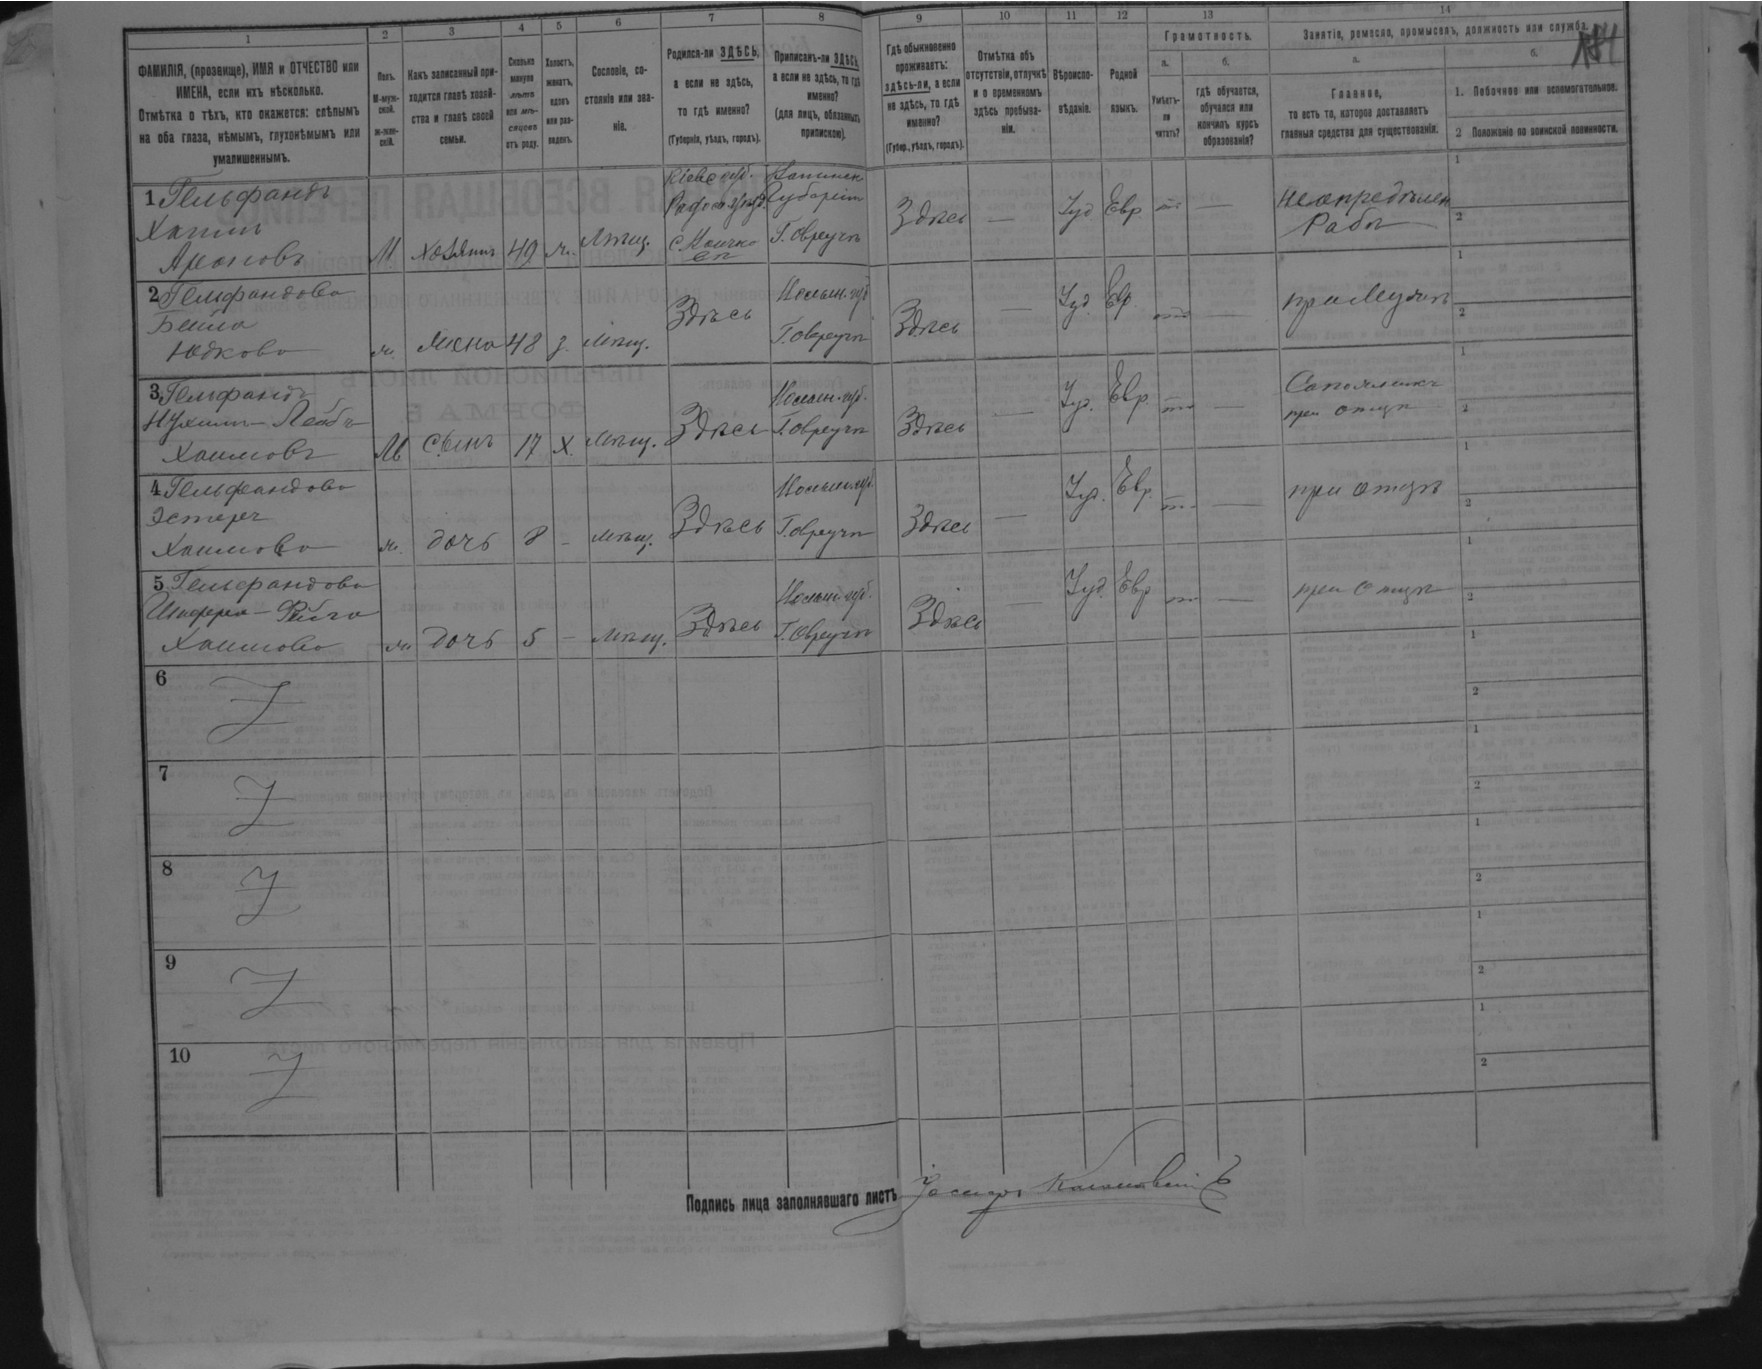 1 2 3 4 5 6 7 8 9 10 11 12 13 14
ФАМИЛІЯ, (прозвище), ИМЯ и ОТЧЕСТВО или
ИМЕНА, если ихъ нѣсколько.
Отмѣтка о тѣхъ, кто окажется: слѣпымъ
на оба глаза, нѣмымъ, глухонѣмымъ или
умалишеннымъ.
Полъ.
М-муж-
ской.
ж-жен-
скій.
Какъ записанный при-
ходится главѣ хозяй-
ства и главѣ своей
семьи.
Сколько
минуло
лѣтъ
или мѣ-
сяцевъ
отъ роду.
Холостъ,
женатъ,
вдовъ
или раз-
веденъ.
Сословіе, со-
стояніе или зва-
ніе.
Родился-ли ЗДѢСЬ,
а если не здѣсь,
то гдѣ именно?
(Губернія, уѣздъ, городъ).
Приписанъ-ли ЗДѢСЬ,
а если не здѣсь, то гдѣ
именно?
(для лицъ, обязанныхъ
припискою).
Гдѣ обыкновенно
проживаетъ:
здѣсь-ли, а если
не здѣсь, то гдѣ
именно?
(Губер., уѣздъ, городъ).
Отмѣтка объ
отсутствіи, отлучкѣ
и о временномъ
здѣсь пребыва-
ніи.
Вѣроиспо-
вѣданіе.
Родной
языкъ.
Грамотность.
а.
Умѣетъ-
ли
читать?
б.
гдѣ обучается,
обучался или
кончилъ курсъ
образованія?
Занятіе, ремесло, промыселъ, должность или служба.
а.
Главное,
то есть то, которое доставляетъ
главныя средства для существованія.
б.
1. Побочное или вспомогательное.
2 Положеніе по воинской повинности.
1 Гельфандъ
Хаимъ
Ароновъ
М хозяинъ 49 ж. Мѣщ.
Кіевс губ.
Г. Овручъ
Здѣсь — Іуд Евр — неопредѣлен
Рабы
2 Гельфандова
Бейла
Юдкова
ж. Жена 48 з. Мѣщ. Здѣсь
Волын. губ
Г. Овручъ
Здѣсь — Іуд. Евр. при Мужѣ
3 Гельфандъ
Нухимъ-Лейбъ
Хаимовъ
М Сынъ 17 Х. Мѣщ. Здѣсь
Волын. губ.
Г. Овручъ
Здѣсь — Іуд. Евр. — Сапожникъ
при отцѣ
4 Гельфандова
Эстеръ
Хаимова
ж. дочь 8 - мѣщ. Здѣсь
Волын. губ.
Г. Овручъ
Здѣсь — Іуд. Евр. — при отцѣ
5 Гельфандова
Хаимова
ж дочь 5 — мѣщ. Здѣсь
Волын. губ.
Г. Овручъ
Здѣсь — Іуд. Евр. — при отцѣ
6
7
8
9
10
Подпись лица заполнявшаго листъ